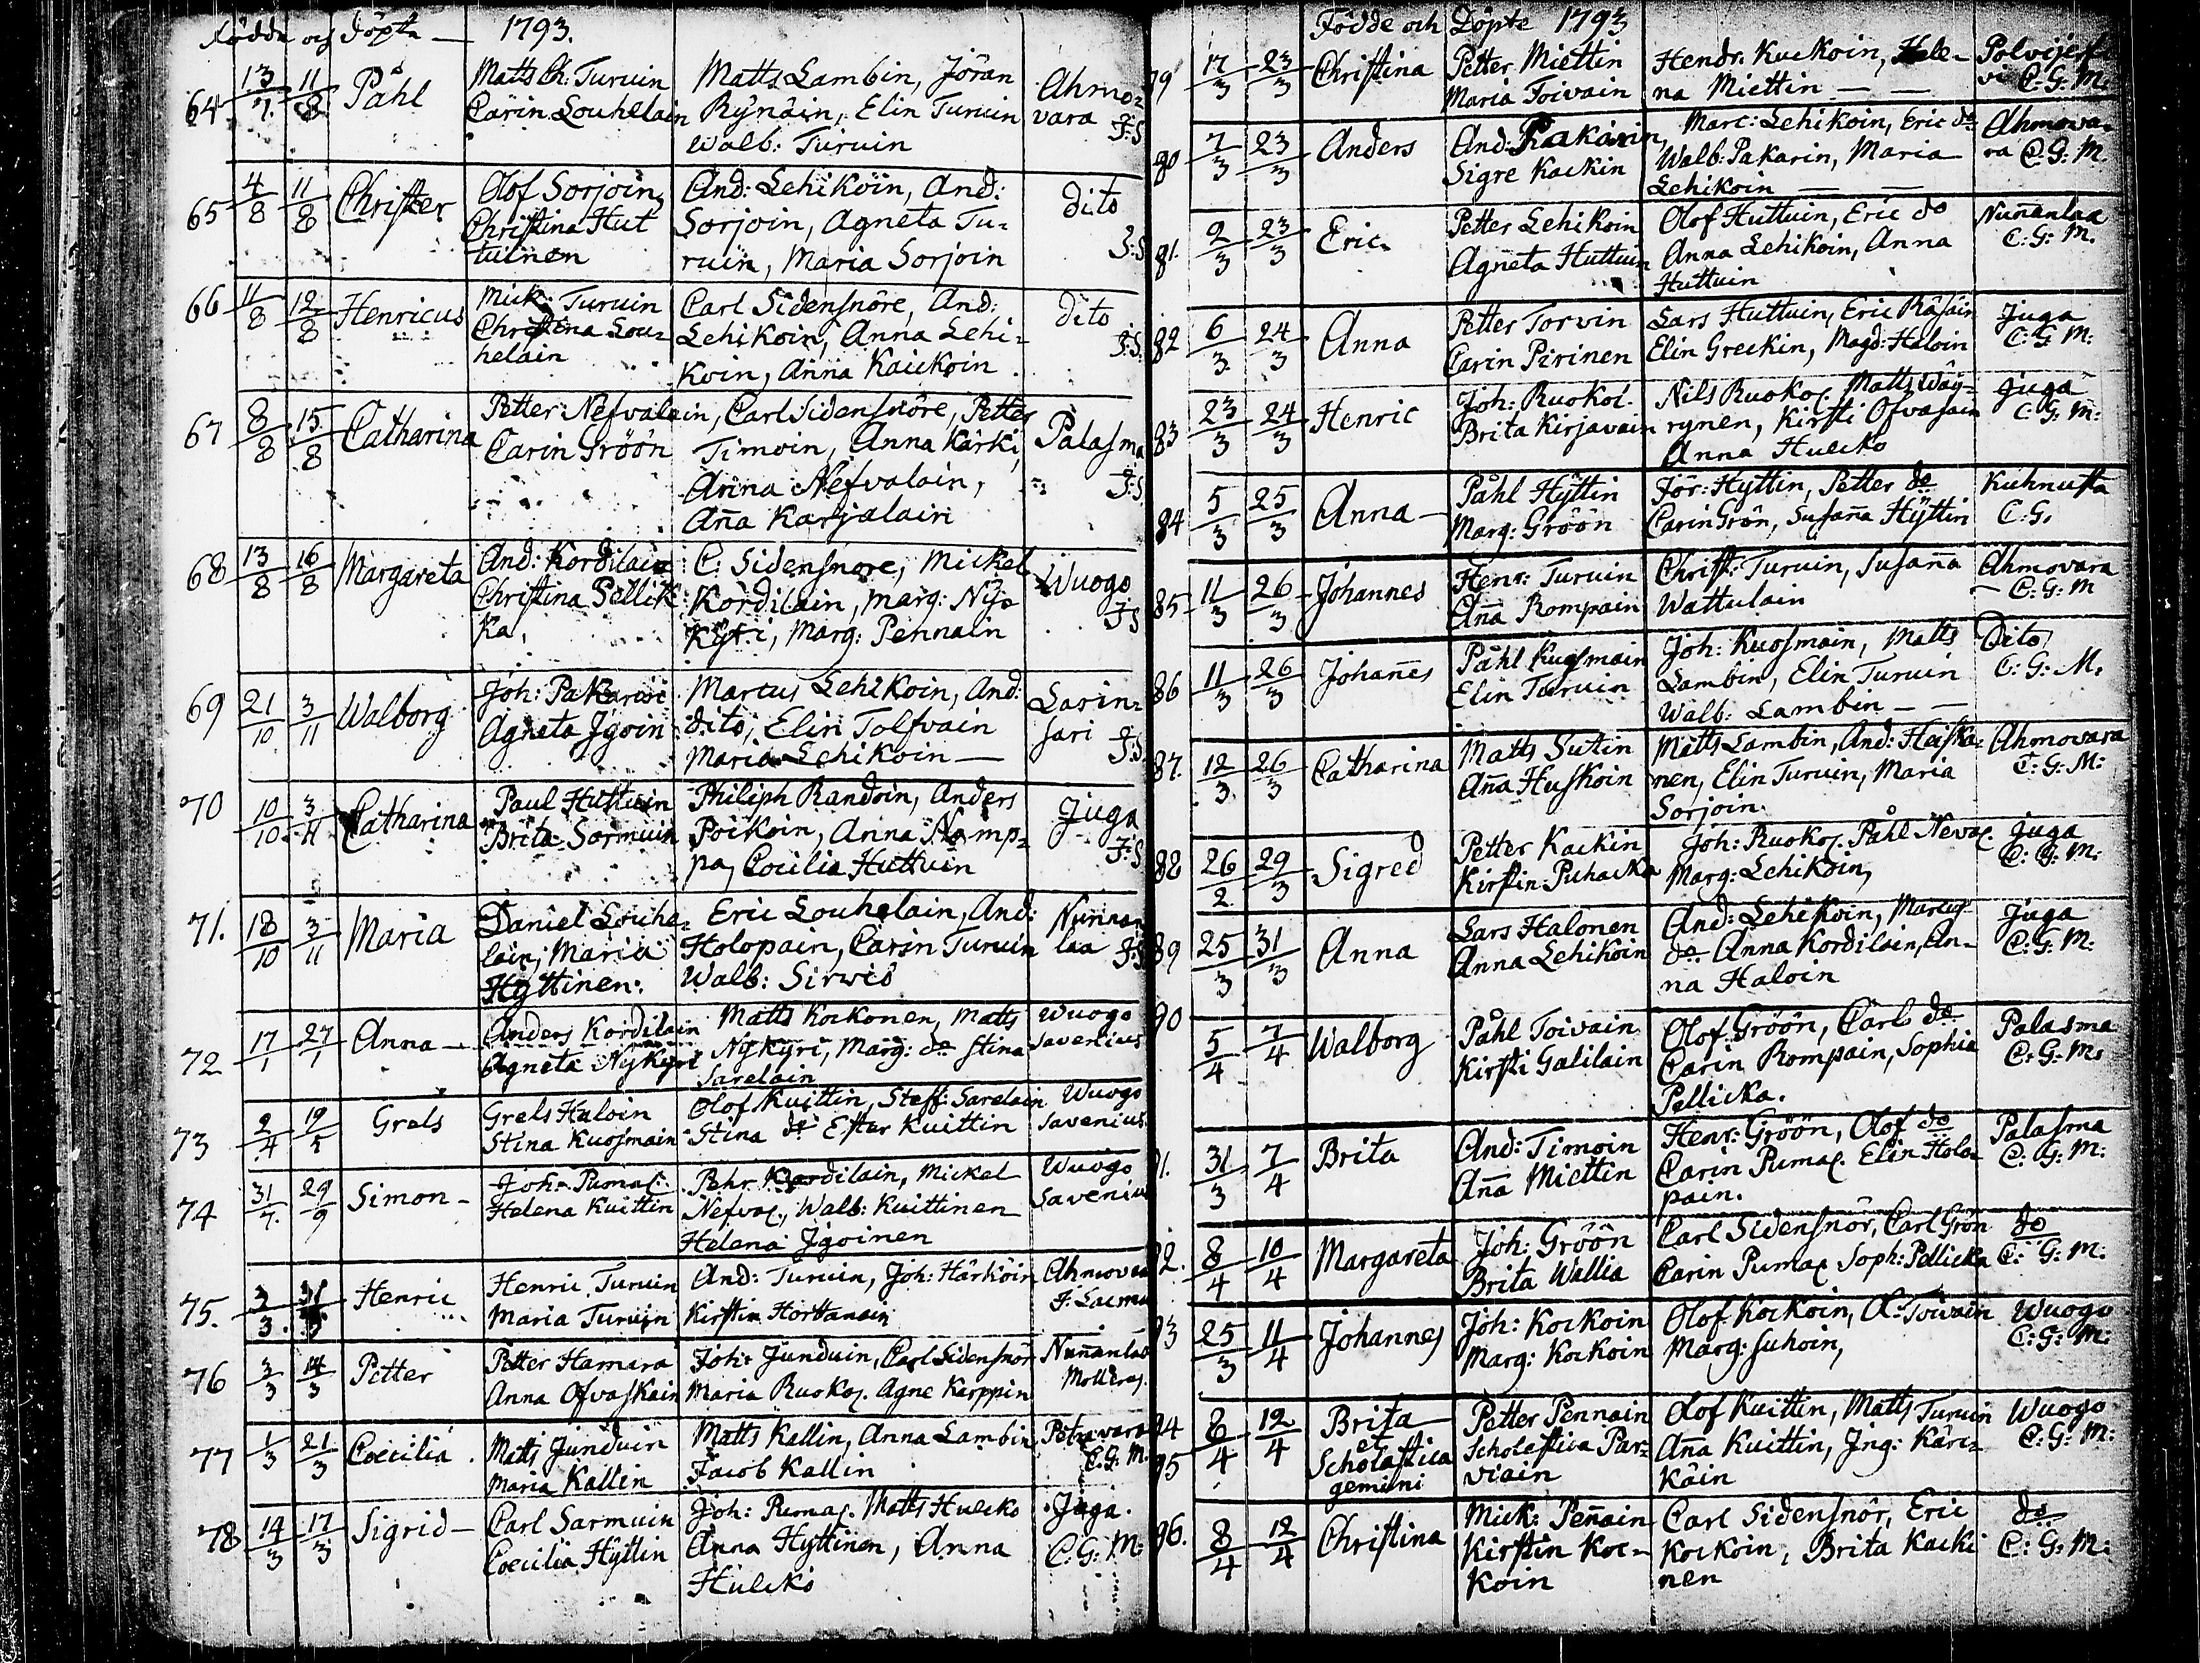 Födde och Döpte — 1793.
64 13/7. 11/8 Påhl Matts Ch: Turuin Matts Lambin, Jöran Ahmo-
Carin Louhelain Rynäin, Elin Turuin vara J:S
Walb: Turuin
65 4/8 11/8 Christer Olof Sorjoin, And: Lehikoin, And: dito
Christina Hut Sorjoin, Agneta Tu- J:S
tuinen ruin, Maria Sorjoin
66 11/8 12/8 Henricus Mick: Turuin Carl Sidensnöre, And: dito
Christina Lou- Lehikoin, Anna Lehi- J:S.
helain koin, Anna Kaickoin
67 8/8 15/8 Catharina Petter Nefvalain, Carl Sidensnöre, Petter Palasma
Carin Gröön Timoin, Anna Kärki, J:S
Anna Nefvalain,
Aña Karjalain
68 13/8 16/8 Margareta And: Kordilain C: Sidensnore, Mickel Wuogo
Christina Pellik Kordilain, Marg: Ny- J:S
ka, kyri, Marg: Pennain
69 21/10 3/11 Walborg Joh: Pakarin Marcus Lehikoin, And: Larin-
Agneta Igoin dito, Elin Tolfvain sari J:S
Maria Lehikoin —
70 10/10 3/11 Catharina Paul Huttuin Philiph Randoin, Anders Juga
Brita Sormuin Poikoin, Anna Namp- J:S
pa, Cecilia Huttuin
71. 18/10 3/11 Maria Daniel Louhe- Eric Louhelain, And: Nunnan-
lain, Maria Holopain, Carin Turuin laa J:S
Hyttinen. Walb: Sirwio
72 17/1 27/1 Anna — Anders Kordilain Matts Kockonen, Matts Wuogo
Agneta Nykyri Nykyri, Marg: do Stina Savenius
Sarelain
73 2/4 19/5 Grels Grels Haloin Olof Kuittin, Steff: Sarelain Wuogo
Stina Kuosmain Stina do Ester Kuittin Savenius
74 31/7. 29/9 Simon — Joh: Pumal. Pehr Kordilain, Mickel Wuogo
Helena Kuittin Nefval., Walb: Kuittinen Savenius
Helena Igoinen
75. 3/3. 31/3 Henric Henric Turuin And: Turuin, Joh: Härköin Ahmovaa
Maria Turuin Kirstin Horttanain
76 3/3 14/3 Petter Petter Hamara Joh: Junduin, Carl Sidensnör Nuñanlaa
Anna Ofvaskain Maria Ruokol. Agne Karppin
77 1/3 21/3 Coecilia. Matts Junduin Matts Kallin, Anna Lambin Petravara
Maria Kallin Jacob Kallin C.G. M.
78 14/3 17/3 Sigrid — Carl Sarmuin Joh: Pumal. Matts Hulcko Juga.
Coecilia Hyttin Anna Hyttinen, Anna C:G: M:
Hulcko
Födde och Döpte 1793
79 17/3 23/3 Christina Petter Miettin Hendr. Kuckoin, Hele- Polvijerf
Maria Toivain na Miettin — — vi C.G.M.
80 7/3 23/3 Anders And: Pakarin, Marc: Lehikoin, Eric do Ahmova-
Sigre Kackin Walb: Pakarin, Maria ra C.G.M.
Lehikoin — —
81. 2/3 23/3 Eric. Petter Lehikoin Olof Huttuin, Eric do Nuñanlaa
Agneta Huttuin Anna Lehikoin, Anna C:G: M.
Huttuin
82 6/3 24/3 Anna Petter Torvin Lars Huttuin, Eric Räsäin Juga
Carin Pirinen Elin Greckin, Magd: Haloin C:G M:
83 23/3 24/3 Henric Joh: Ruokol. Nils Ruokol. Matts Wäy- Juga
Brita Kirjavain rynen, Kirsti Ofvasain C.G. M:
Anna Hulcko
84 5/3 25/3 Anna — Påhl Hyttin Jör: Hyttin, Petter do Kuhnusta
Marg: Gröön Carin Grön, Susaña Hyttin C:G.
85 11/3 26/3 Johannes Henr: Turuin Christ: Turuin, Susaña Ahmovara
Aña Rompain Wattulain — C:G:M
86 11/3 26/3 Johañes Påhl Kuosmain Joh: Kuosmain, Matts Dito
Elin Turuin Lambin, Elin Turuin C:G: M.
Walb: Lambin — —
87. 12/3 26/3 Catharina Matts Sutin Matts Lambin, And: Heiska- Ahmovara
Aña Huskoin nen, Elin Turuin, Maria C:G:M:
Sorjoin.
88 26/2 29/3 Sigred Petter Kackin Joh: Ruokol. Påhl Neval. Juga
Kirstin Puhacka Marg: Lehikoin, C: G: M:
89 25/3 31/3 Anna Lars Halonen And: Lehikoin, Marcus Juga
Anna Lehikoin do Anna Kordilain, An- C:G:M:
na Haloin
90 5/4 7/4 Walborg Påhl Toivain Olof Gröön, Carl do Palasma
Kirsti Galilain Carin Rompain, Sophia C:G:M:
Pellicka.
91. 31/3 7/4 Brita And: Timoin Henr: Gröön, Olof do Palasma
Aña Miettin Carin Pumal. Elin Holo- C: G: M:
pain.
92. 8/4 10/4 Margareta Joh: Gröön Carl Sidensnör, Carl Grön do
Brita Wallia Carin Pumal Soph: Pellicka C: G: M:
93 25/3 11/4 Johannes Joh: Kockoin Olof Kockoin, A: Toivain Wuogo
Marg: Kockoin Marg: Suhoin, C:G: M:
94 8/4 12/4 Brita Petter Pennain Olof Kuittin, Matts Turuin Wuogo
95 et Scholastica Par- Aña Kuittin, Ing: Kärc- C:G: M:
Scholastica viain käin
gemini
96. 8/4 12/4 Christina Mick: Peñain Carl Sidensnör, Eric do
Kirstin Koc- Kockoin, Brita Kacki C: G: M:
koin nen